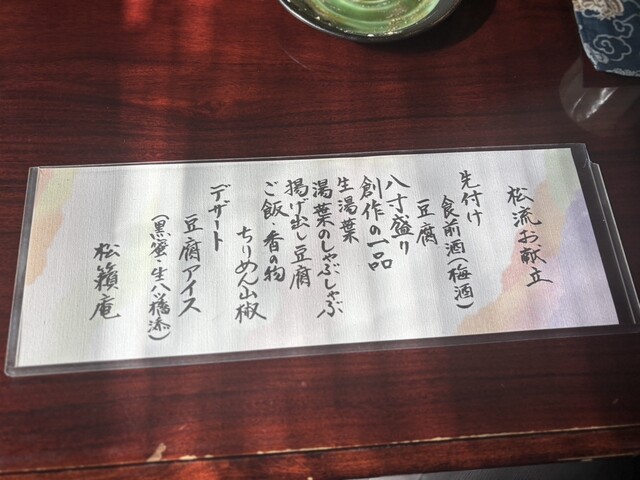 松流お献立
先付け
食前酒(梅酒)
豆腐
八寸盛り
創作の一品
生湯葉
湯葉のしゃぶしゃぶ
揚げ出し豆腐
ご飯 香の物
ちりめん山椒
デザート
豆腐アイス
(黒蜜・生八ツ橋添)
松籟庵